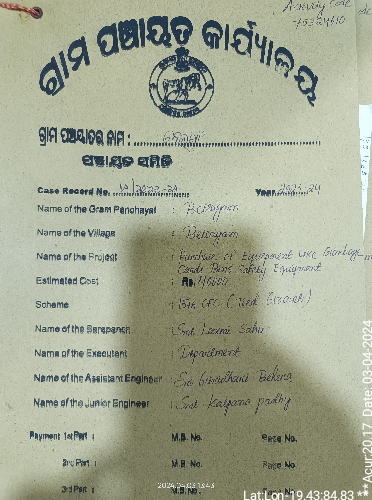 Activity Code
75324410
ଗ୍ରାମ ପଞ୍ଚାୟତ କାର୍ଯ୍ୟାଳୟ
ଗ୍ରାମ ପଞ୍ଚାୟତର ନାମ :
ପଞ୍ଚାୟତ ସମିତି
Case Record No. /2023-24 Year 2023-24
Name of the Gram Panchayat :
Name of the Village :
Name of the Project : Purchase of Equipment like Garbage
Safety Equipment
Estimated Cost : Rs.
Scheme : 15th CFC (Tied Grant)
Name of the Sarapanch : Smt Laxmi Sahu
Name of the Executant : Department
Name of the Assistant Engineer : Behera
Name of the Junior Engineer : Smt. Kalpana padhy
Payment 1st Part : M.B. No. Page No.
2nd Part : M.B. No. Page No.
3rd Part : M.B. No. Page No.
2024.04.03 13:43
Lat:Lon-19.43:84.83
**Acur20.17 Date:03-04-2024